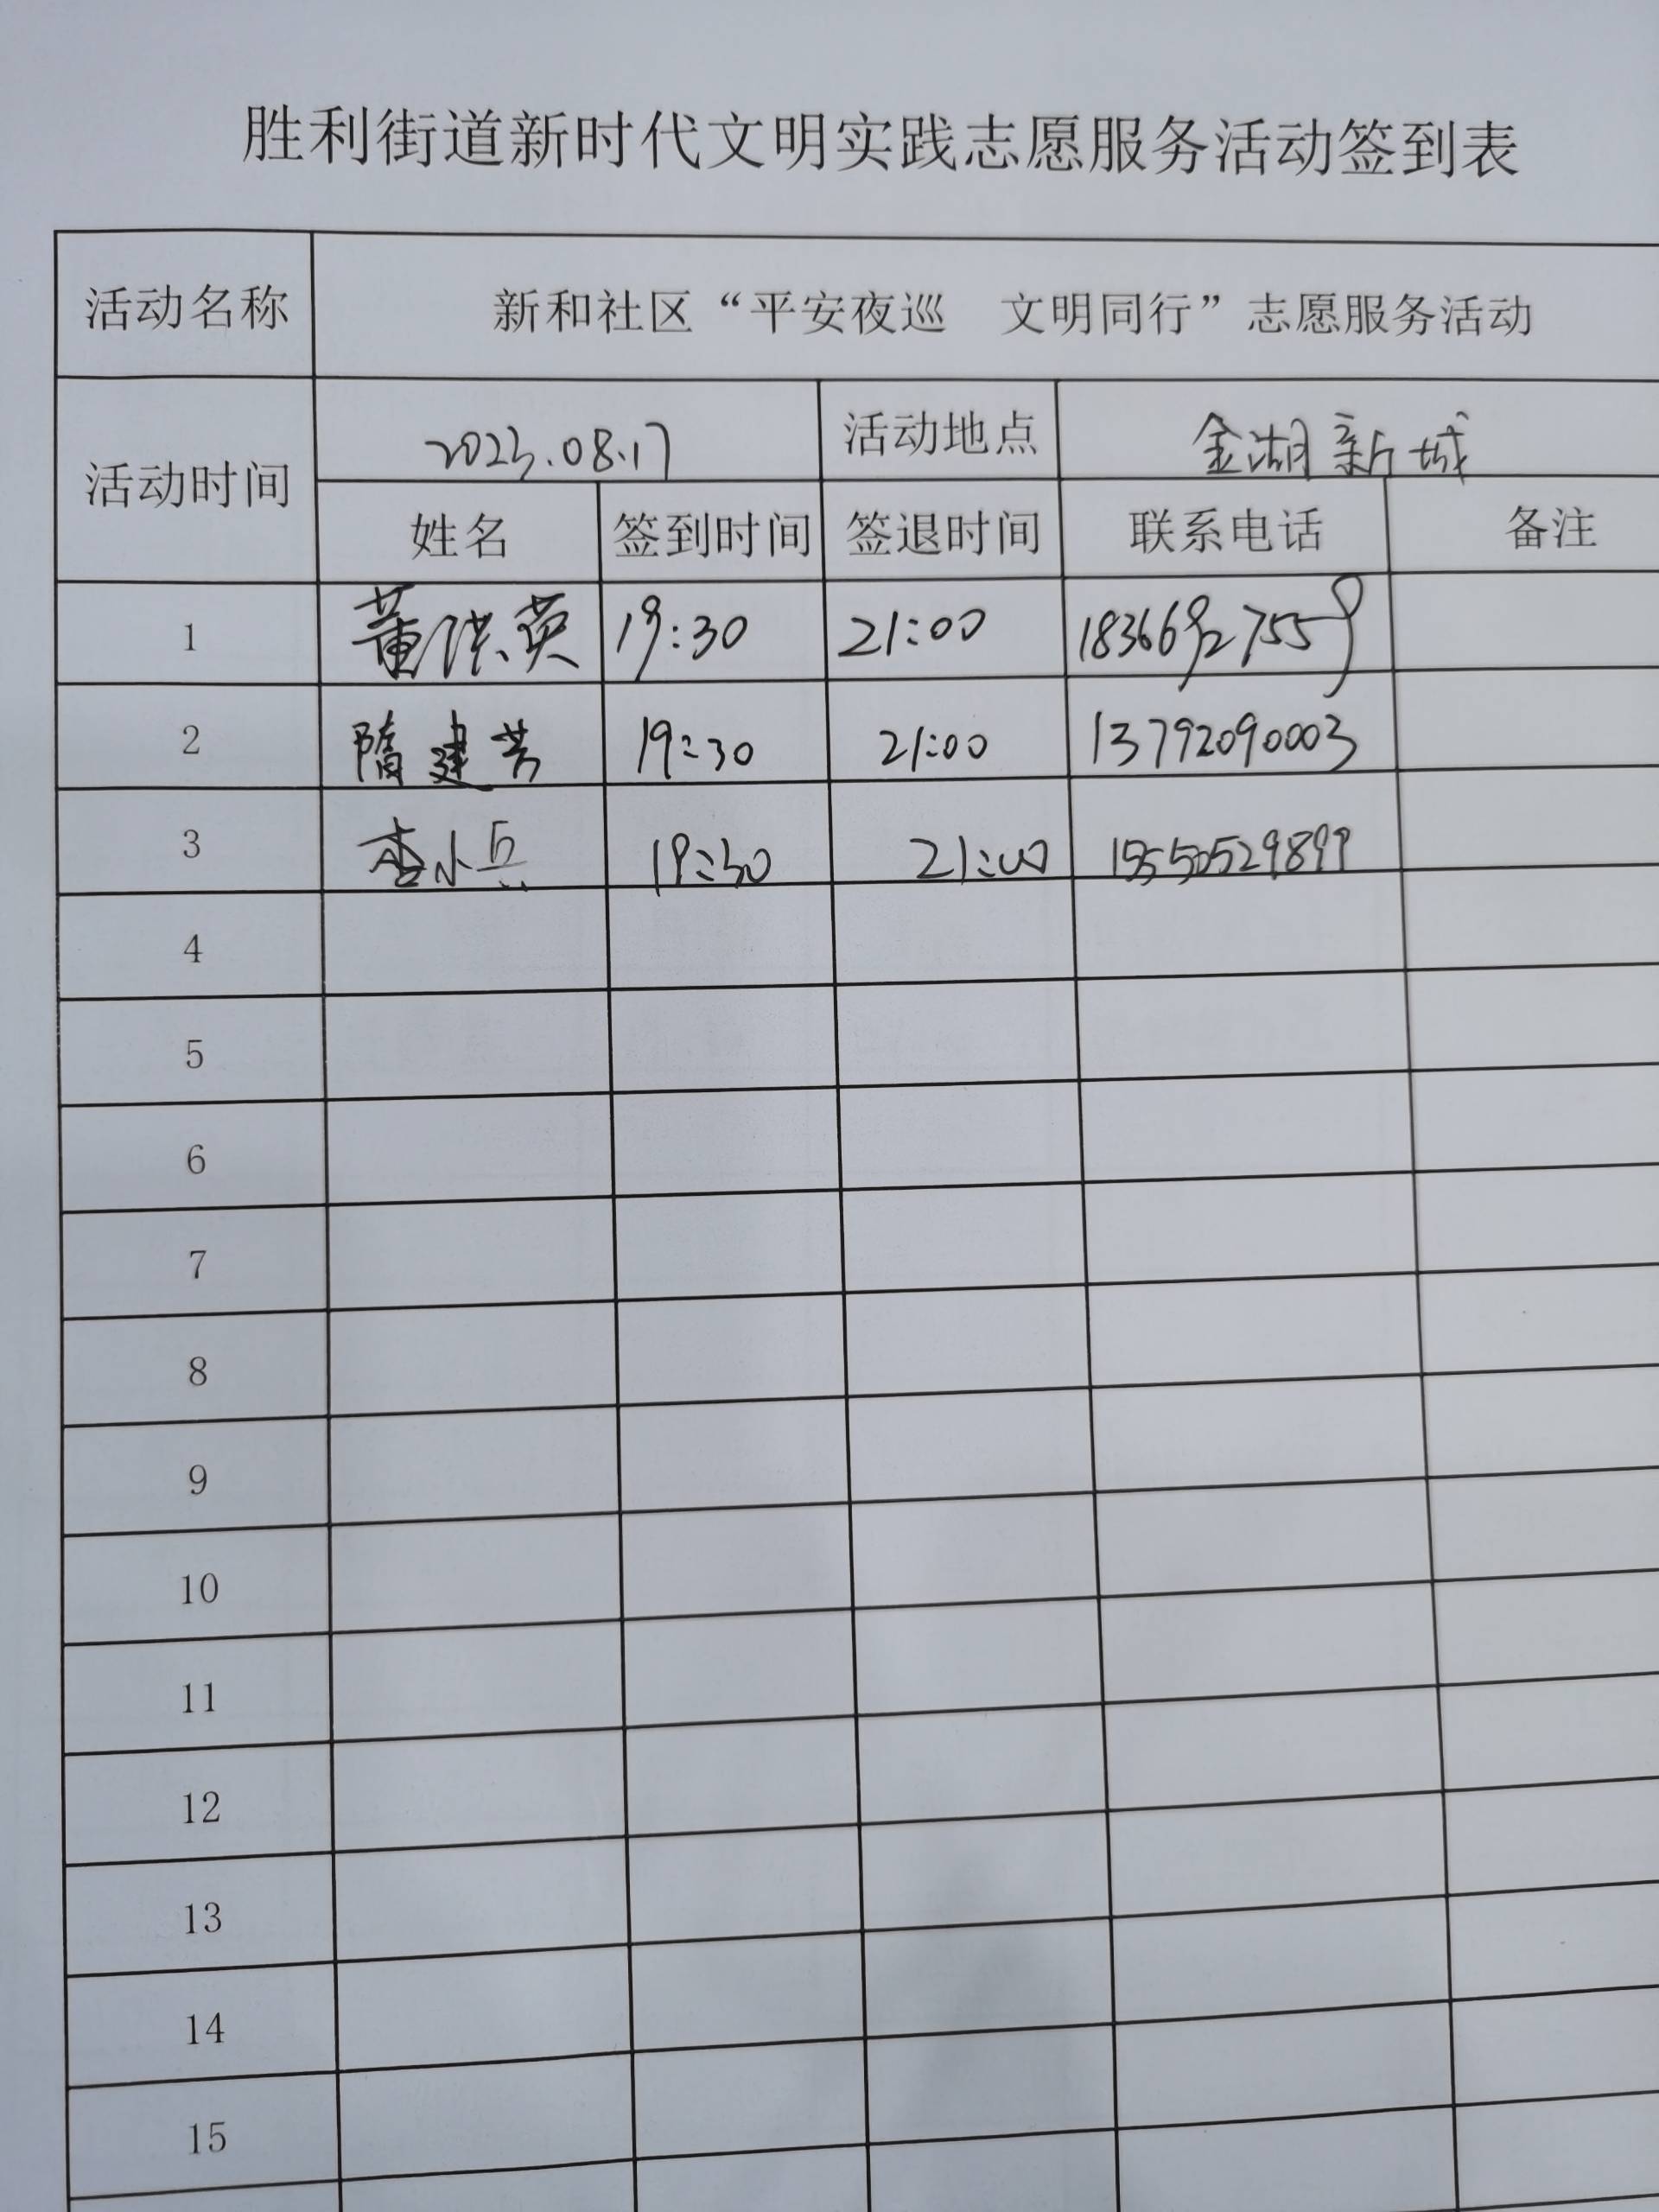 胜利街道新时代文明实践志愿服务活动签到表
活动名称 新和社区“平安夜巡 文明同行”志愿服务活动
活动时间 2023.08.17 活动地点 金湖新城
姓名 签到时间 签退时间 联系电话 备注
1 董洪英 19:30 21:00 18366927559
2 隋建芳 19:30 21:00 13792090003
3 李小兵 19:30 21:00 15550529899
4
5
6
7
8
9
10
11
12
13
14
15